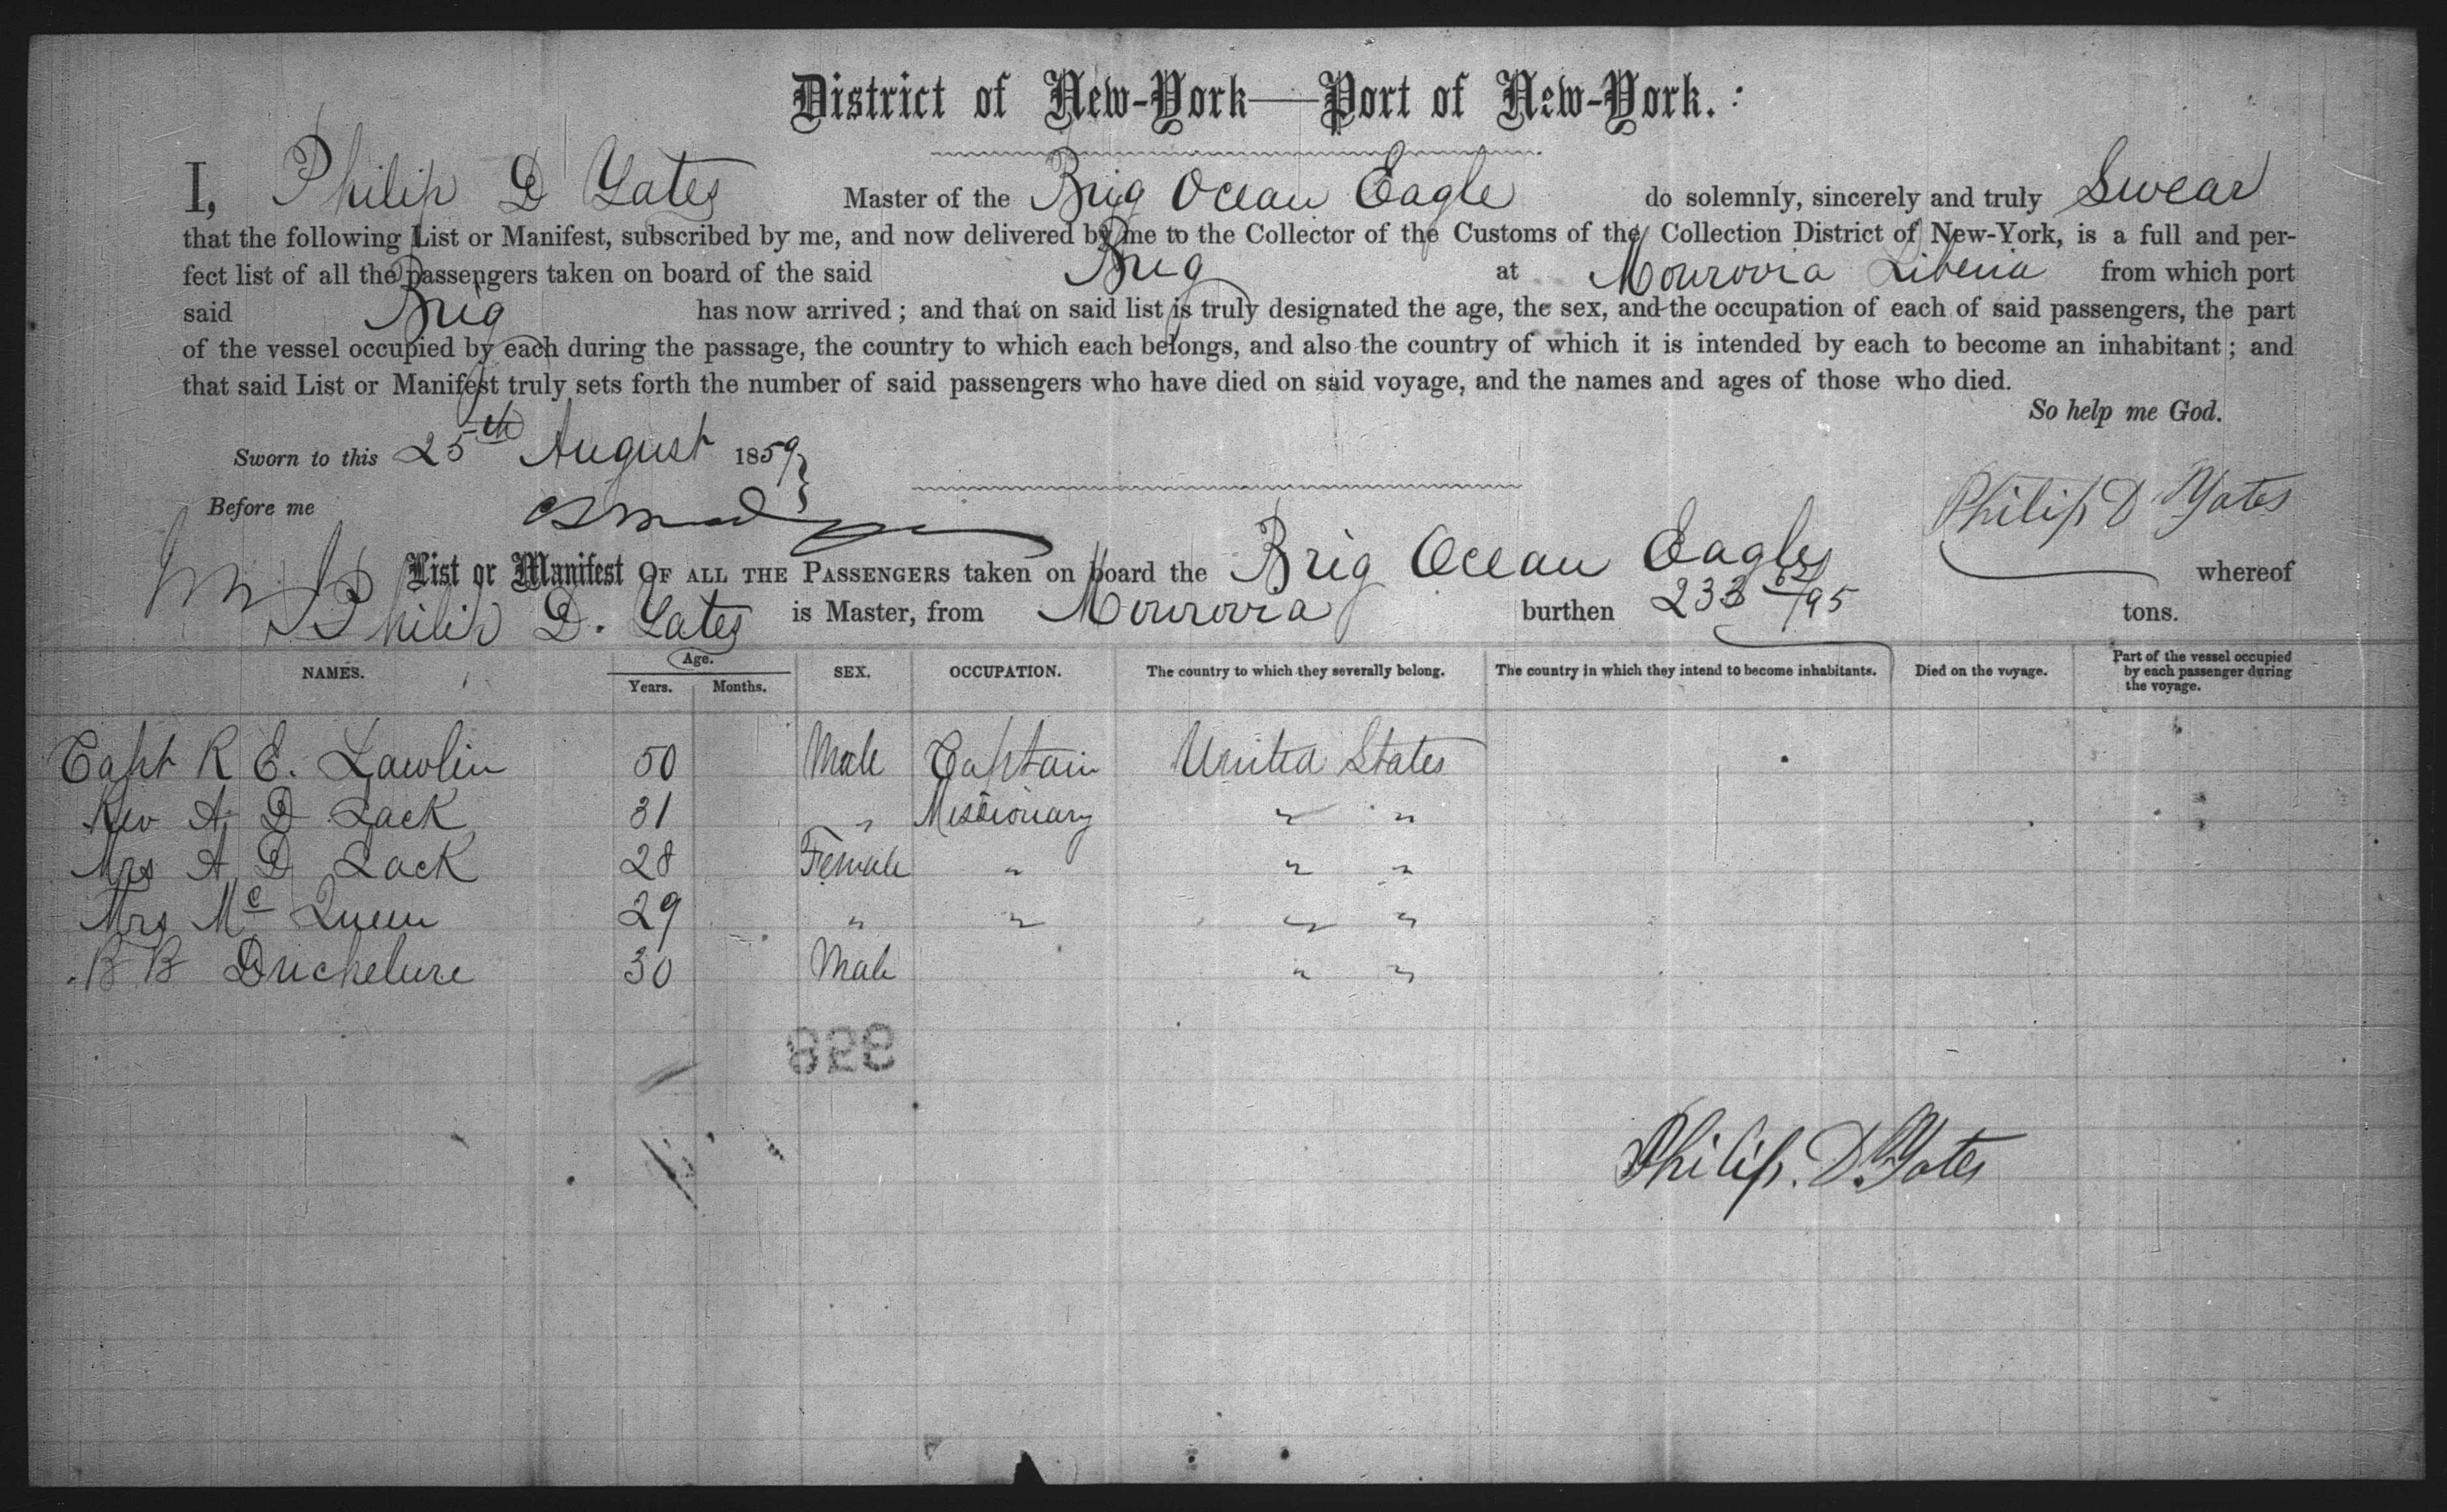 District of New-York—Port of New-York.
I, Philip D Yates Master of the Brig Ocean Eagle do solemnly, sincerely and truly Swear
that the following List or Manifest, subscribed by me, and now delivered by me to the Collector of the Customs of the Collection District of New-York, is a full and per-
fect list of all the passengers taken on board of the said Brig at Monrovia Liberia from which port
said Brig has now arrived; and that on said list is truly designated the age, the sex, and the occupation of each of said passengers, the part
of the vessel occupied by each during the passage, the country to which each belongs, and also the country of which it is intended by each to become an inhabitant; and
that said List or Manifest truly sets forth the number of said passengers who have died on said voyage, and the names and ages of those who died.
So help me God.
Sworn to this 25th August 1859
Before me
Philip D Yates
List or Manifest OF ALL THE PASSENGERS taken on board the Brig Ocean Eagle whereof
Philip D. Yates is Master, from Monrovia burthen 233 /95 tons.
NAMES. Age. Years. Months. SEX. OCCUPATION. The country to which they severally belong. The country in which they intend to become inhabitants. Died on the voyage. Part of the vessel occupied by each passenger during the voyage.
Capt R E. Lawlin 50 Male Captain United States
Rev A D Lack 31 " Missionary " "
Mrs A D Lack 28 Female " " "
Mrs Mc Queen 29 " " " "
B B Duchelure 30 Male " "
Philip. D. Yates